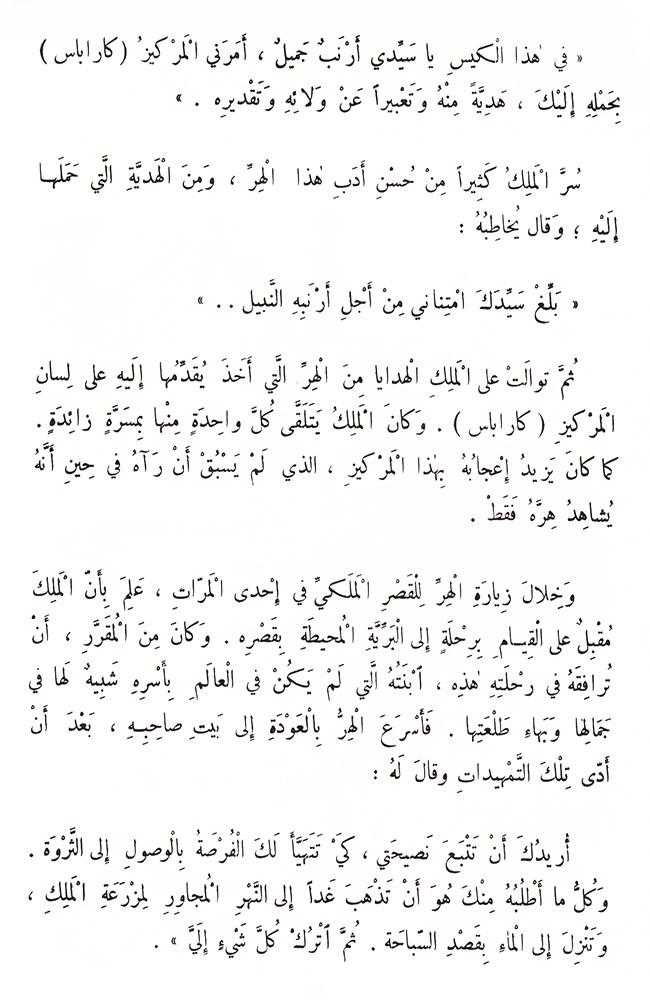 « في هٰذا الْكيسِ يا سَيِّدي أَرْنَبٌ جَميلٌ ، أَمَرَني الْمَرْكيزُ (كاراباس)
بِحَمْلِهِ إِلَيْكَ ، هَدِيَّةً مِنْهُ وَتَعْبيراً عَنْ وَلائِهِ وَتَقْديرِه . »
سُرَّ الْمَلِكُ كَثِيراً مِنْ حُسْنِ أَدَبِ هٰذا الْهِرِّ ، وَمِنَ الْهَدِيَّةِ الَّتي حَمَلَهـا
إِلَيْهِ ؛ وَقال يُخاطِبُهُ :
« بَلِّغْ سَيِّدَكَ امْتِناني مِنْ أَجْلِ أَرْنَبِهِ النَّبيل . . »
ثُمَّ توالَتْ على الْمَلِكِ الْهدايا مِنَ الْهِرِّ الَّتي أَخَذَ يُقَدِّمُها إِلَيهِ على لِسانِ
الْمَرْكيزِ ( كاراباس ) . وَكانَ الْمَلِكُ يَتَلَقَّى كُلَّ واحِدَةٍ مِنْها بِمسَرَّةٍ زائِدَةٍ .
كما كانَ يَزيدُ إِعْجابُهُ بِهٰذا الْمَرْكيزِ ، الذي لَمْ يَسْبُقْ أَنْ رَآهُ في حِينِ أَنَّهُ
يُشاهِدُ هِرَّهُ فَقَطْ .
وَخِلالَ زِيارَةِ الْهِرِّ لِلْقَصْرِ الْمَلَكيِّ في إِحْدى الْمَرّاتِ ، عَلِمَ بِأَنّ الْمَلِكَ
مُقْبِلٌ على الْقِيـامِ بِرِحْلَةٍ إِلى الْبَرِّيَّةِ الْمُحيطَةِ بِقَصْرِه . وَكانَ مِنَ الْمُقَرَّرِ ، أَنْ
تُرافِقَهُ في رِحْلَتِهِ هٰذِه ، ٱبْنَتُهُ الَّتي لَمْ يَكُنْ في الْعالَمِ بِأَسْرِه شَبيهٌ لَها في
جَمَالِها وَبَهاءِ طَلْعَتِها . فَأَسْرَعَ الْهِرُّ بِالْعَوْدَةِ إِلى بَيْتِ صاحِبِـهِ ، بَعْدَ أَنْ
أَدّى تِلْكَ التَّمْهيداتِ وقالَ لَهُ :
أُريدُكَ أَنْ تَتْبَعَ نَصيحَتي ، كَيْ تَتَهَيَّأَ لَكَ الْفُرْصَةُ بِالْوصولِ إِلى الثَّرْوَة .
وَكُلُّ ما أَطْلُبُهُ مِنْكَ هُوَ أَنْ تَذْهَبَ غَداً إِلى النَّهْرِ الْمُجاوِرِ لِمزْرَعَةِ الْمَلِكِ ،
وَتَنْزِلَ إِلى الْماءِ بِقَصْدِ السِّباحَة . ثُمَّ ٱتْرُكْ كُلَّ شَيْءٍ إِلَيَّ » .